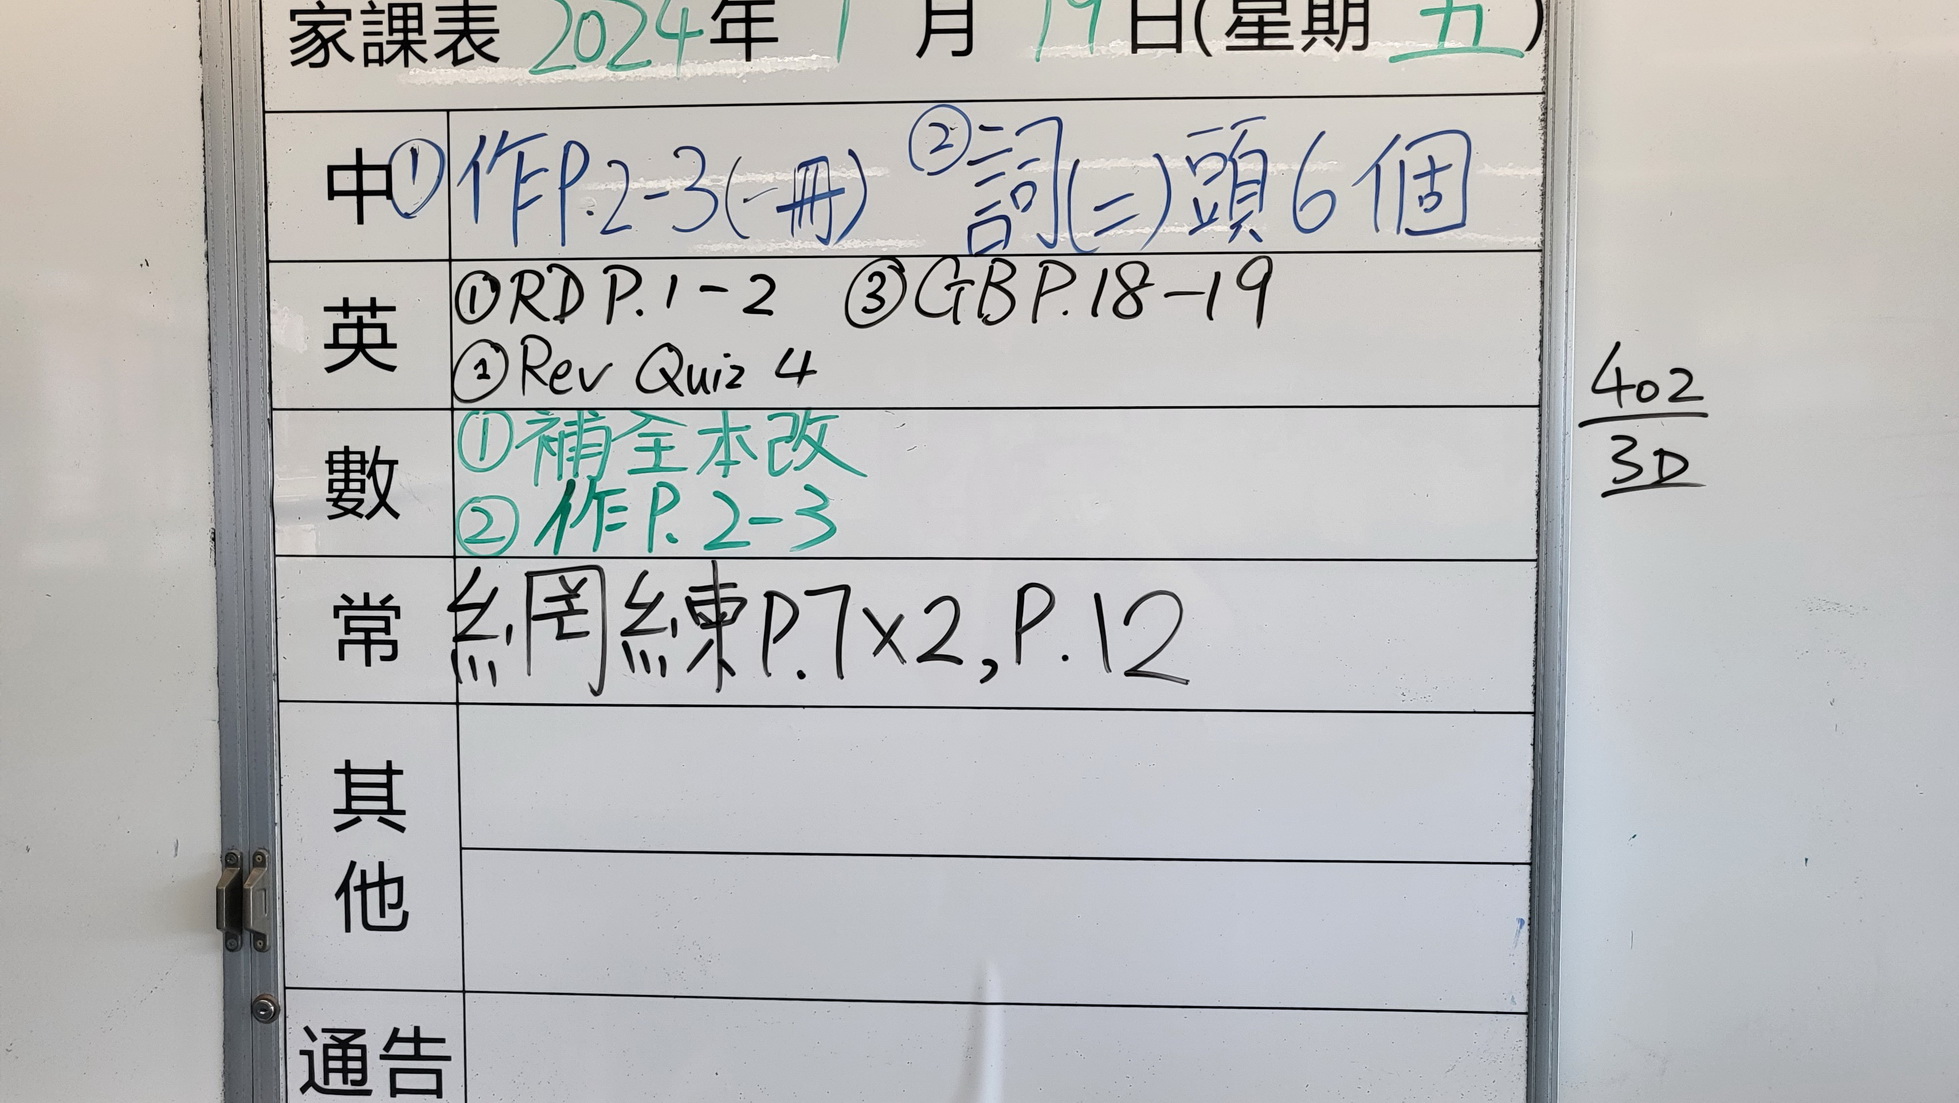 家課表 2024年 1 月 19 日(星期 五)
中 ①作P.2-3(一冊) ②詞(二)頭6個
英 ①RD P.1-2 ③GB P.18-19
②Rev Quiz 4
數 ①補全本改
②作P.2-3
常 網練P.7x2, P.12
其他
通告
402
3D